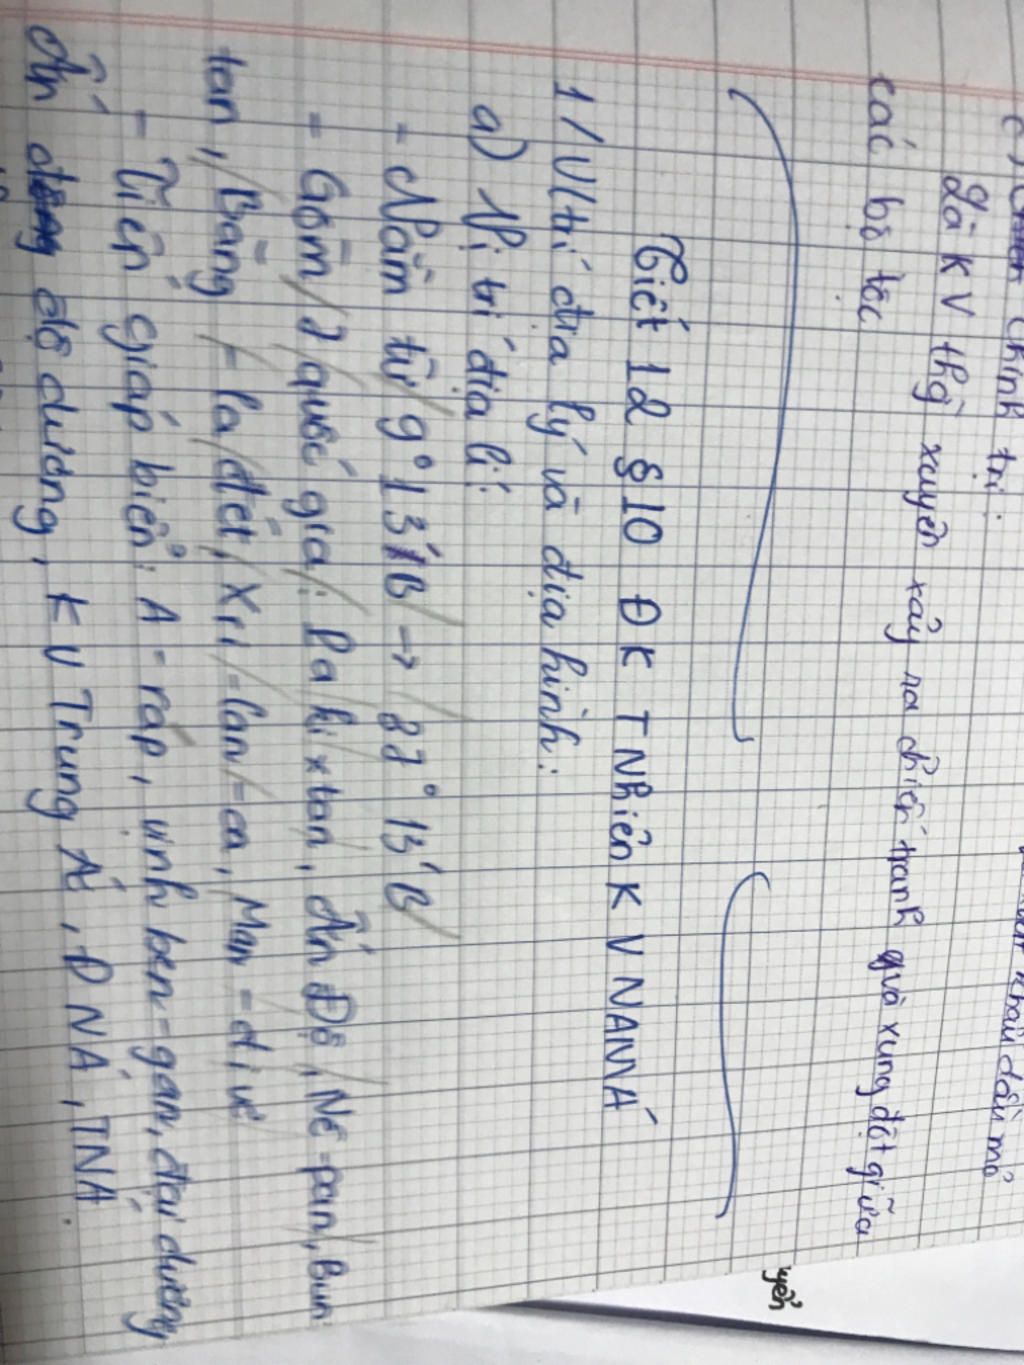 chính trị:
khẩu dầu mỏ
Là KV thg̀ xuyên xảy ra chiến tranh và xung đột giữa
các bộ tộc
Tiết 12 § 10 ĐK TNhiên KV NAM Á
1/ Vị trí địa lý và địa hình:
a) Vị trí địa lí:
- Nằm từ 9°13'B → 37°13'B
- Gồm 7 quốc gia: Pa kixtan, Ấn Độ, Nê-pan, Bun
tan, Băng-la/đét, Xri-lan-ca, Man-đi vơ
- Tiếp giáp biển: A-ráp, vịnh ben-gan, đại dương
Ấn độ dương, KV Trung Á, ĐNÁ, TNÁ